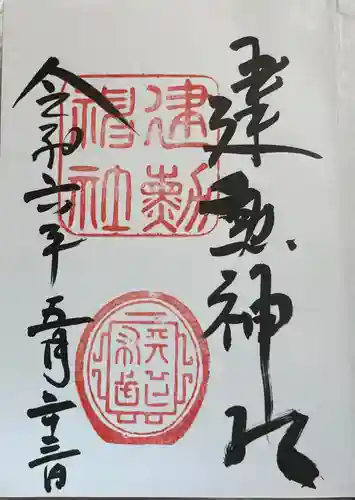 建勲神社
令和六年 五月二十三日
建勲
神社